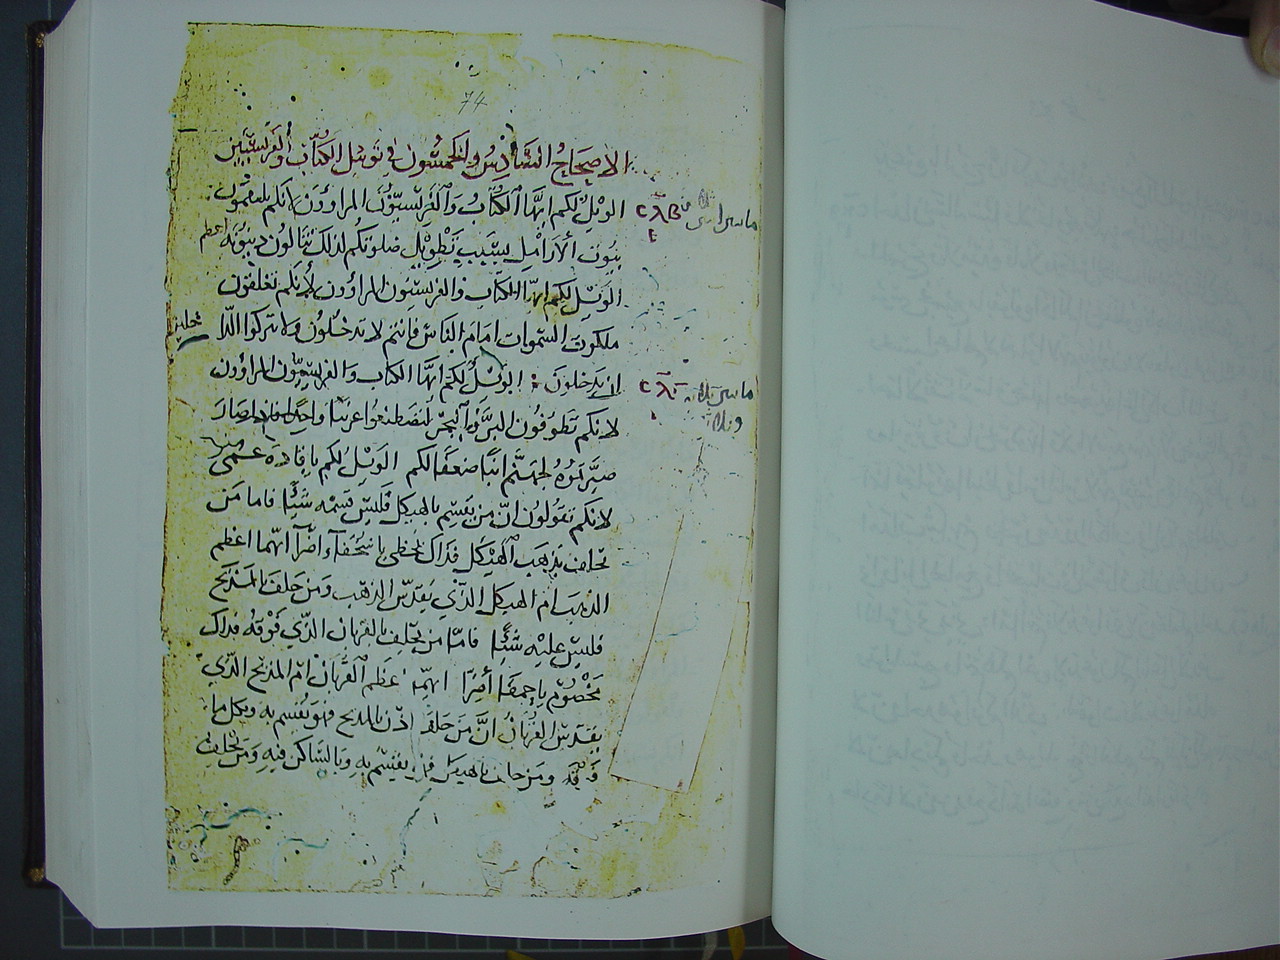 74
الاصحاح السادس والخمسون في توبيل الكتاب والفريسيين
الويل لكم ايها الكتاب والفريسيون المراؤون لانكم تلتقمون
بيوت الارامل بسبب تطويل صلوتكم لذلك تنالون دينونه اعظم
الويل لكم ايها الكتاب والفريسيون المراؤون لأنكم تغلقون
ملكوت السموات امام الناس فانتم لا تدخلون ولا تتركوا
ان يدخلون الويل لكم ايها الكتاب والفريسيون المراؤون
لانكم تطوفون البر والبحر لتصطنعوا غريبًا واحدا فاذا صار
صيرتموه لجهنم ابنًا ضعفًا لكم الويل لكم يا قادة عمي
لانكم تقولون ان من يقسم بالهيكل فليس قسمه شئًا فاما من
تحلف بذهب الهيكل فذاك يخطى يا سخفآء اضرآ ايهما اعظم
الذهب ام الهيكل الذي يقدس الذهب ومن حلف بالمذبح
فليس عليه شئًا فامّا من يحلف بالقربان الذي فوقه فذاك
مخصوم يا حمقا أضرا ايهما عظم القربان ام المذبح الذي
يقدس القربان انّ من حلف اذن بالمذبح فهو يقسم به وبكل ما
فوقه ومن حلف بالهيكل فهو يقسم به وبالساكن فيه ومن يحلف